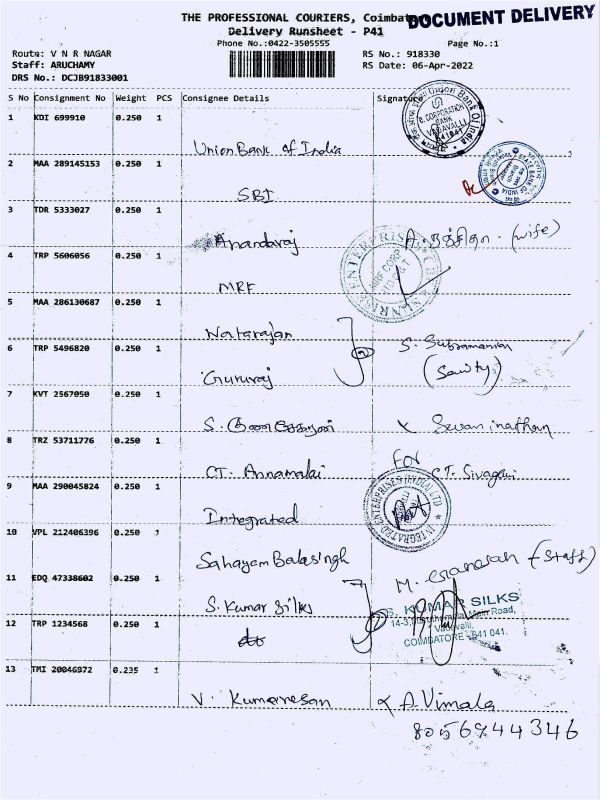 THE PROFESSIONAL COURIERS, Coimbatore
DOCUMENT DELIVERY
Delivery Runsheet - P41
Phone No.:0422-3505555
Page No.:1
Route: V N R NAGAR
RS No.: 918330
Staff: ARUCHAMY
RS Date: 06-Apr-2022
DRS No.: DCJB91833001
S No Consignment No Weight PCS Consignee Details Signature
1 KDI 699910 0.250 1
Union Bank of India
2 MAA 289145153 0.250 1
SBI
3 TDR 5333027 0.250 1
Anandaraj (wife)
4 TRP 5606056 0.250 1
MRF
5 MAA 286130687 0.250 1
Natarajan
S. Subramanian
6 TRP 5496820 0.250 1
Gururaj
7 KVT 2567050 0.250 1
S.
8 TRZ 53711776 0.250 1
CT. Annamalai
For CT. Sivagami
9 MAA 290045824 0.250 1
Integrated
INTEGRATED ENTERPRISES (INDIA) LTD
10 VPL 212406396 0.250 1
Sahayam Balasingh
M. (Staff)
11 EDQ 47338602 0.250 1
S. Kumar Silks
S. KUMAR SILKS
Main Road,
Vadavalli,
COIMBATORE - 641 041.
12 TRP 1234568 0.250 1
13 TMI 20046972 0.235 1
V. Kumaresan
A. Vimala
8056944346